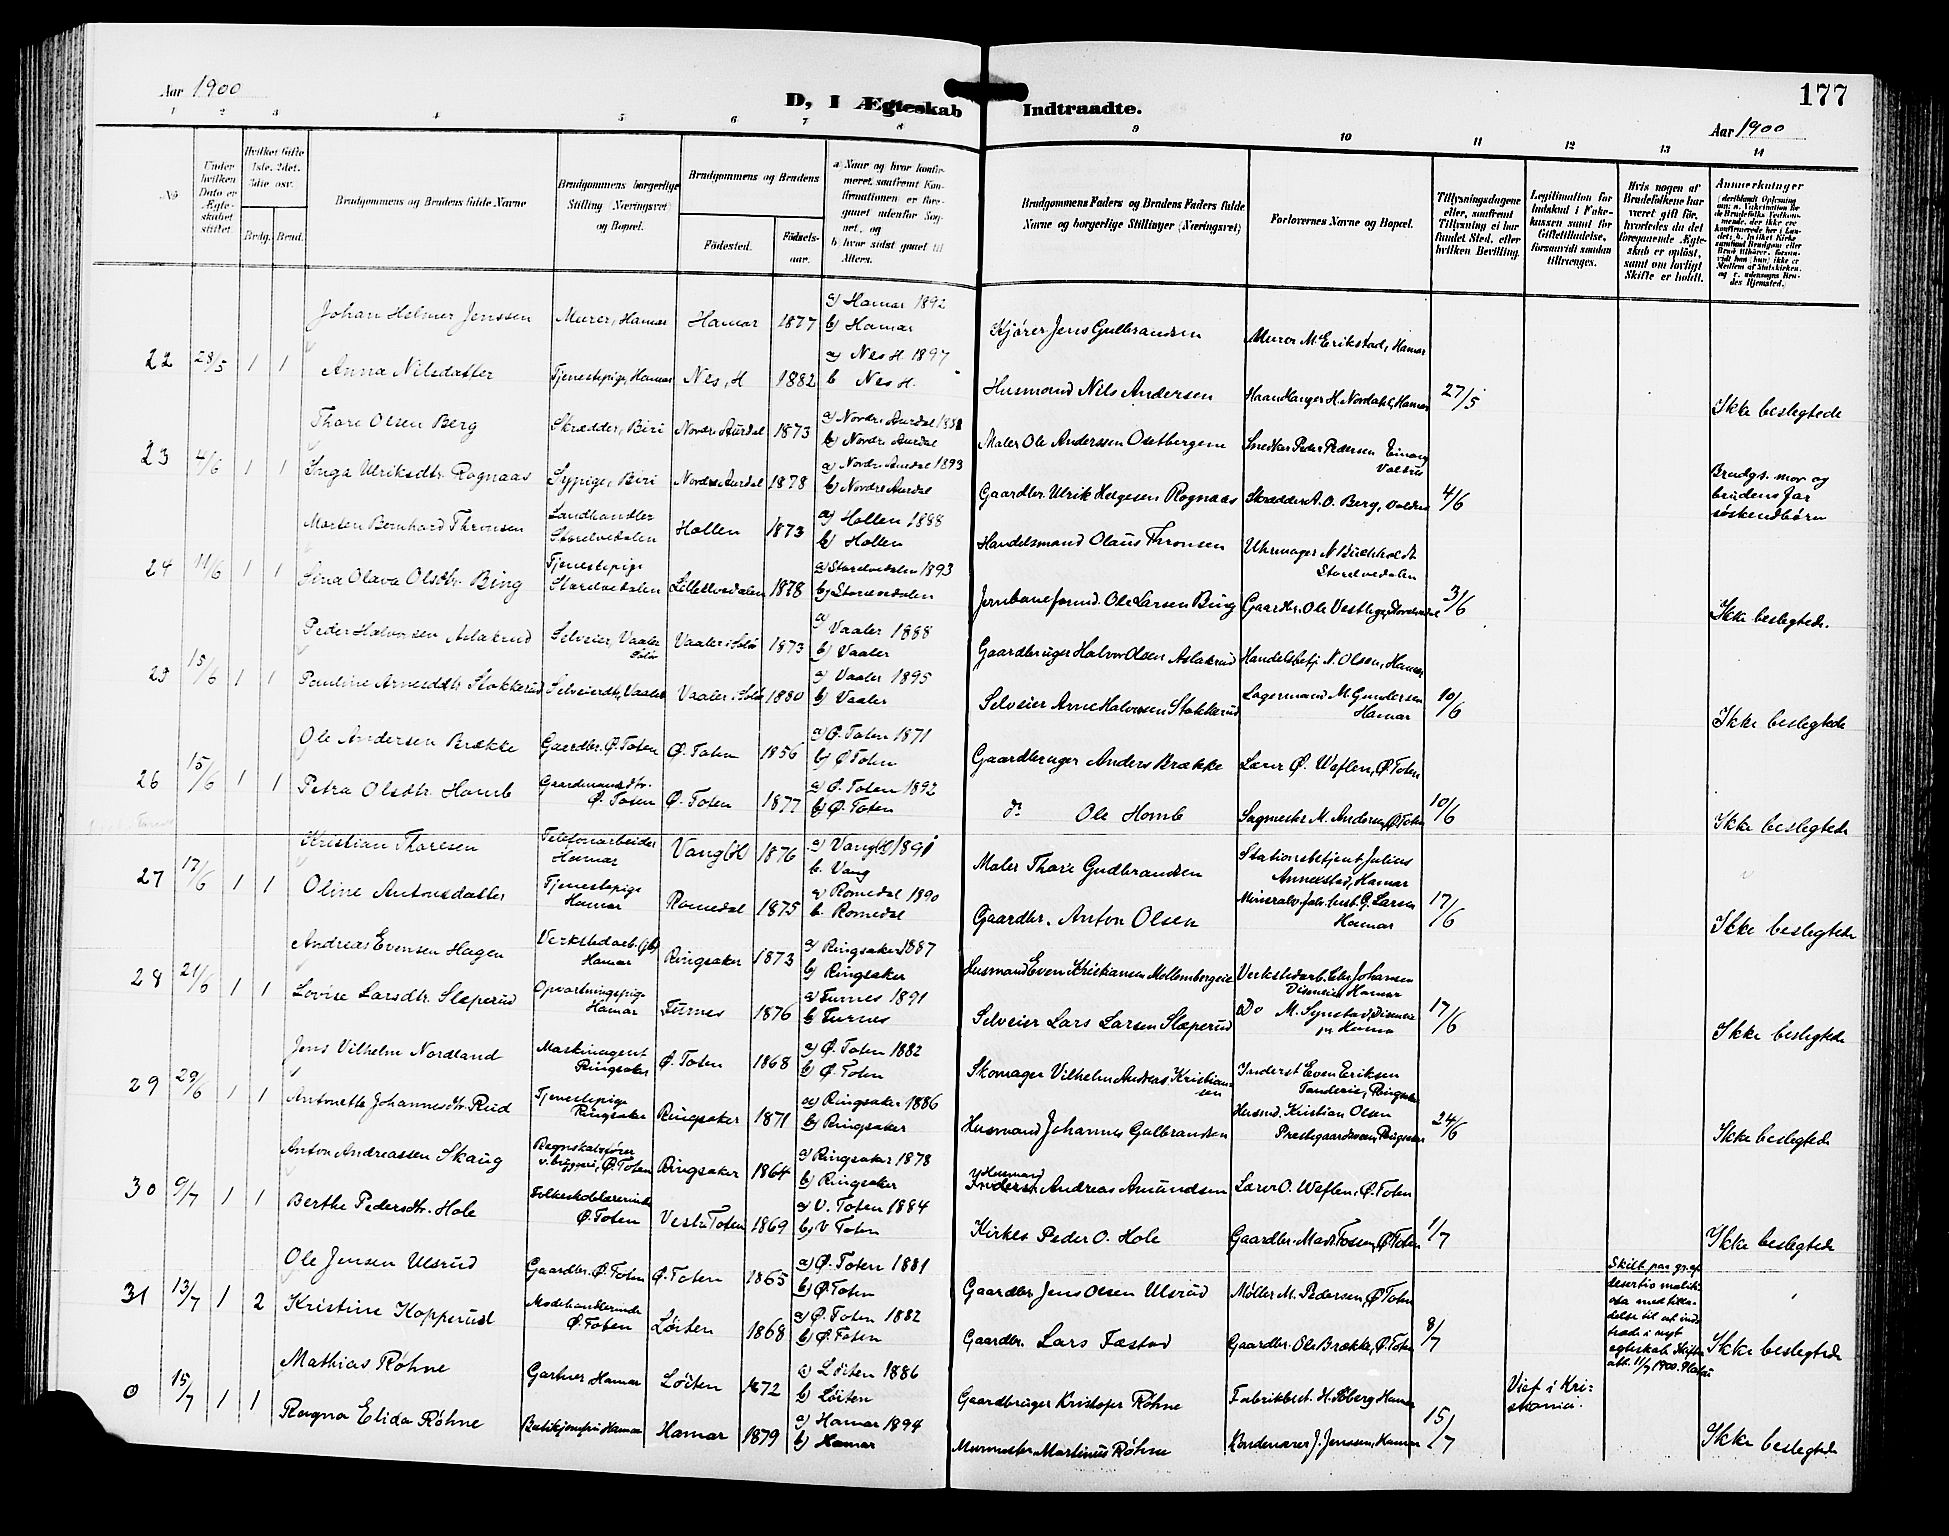 177
Aar 1900
D, I Ægteskab Indtraadte.
Aar 1900
1 2 3 4 5 6 7 8 9 10 11 12 13 14
No
Under hvilken Dato er Ægteskabet stiftet.
Hvilket Gifte 1ste, 2det, 3die osv.
Brdg. Brud.
Brudgommens og Brudens fulde Navne
Brudgommens borgerlige Stilling (Næringsvei) og Bopæl.
Brudgommens og Brudens
Fødested.
Fødselsaar.
a) Naar og hvor konfirmeret, saafremt Konfirmationen er foregaaet udenfor Sognet, og
b) hvor sidst gaaet til Alters.
Brudgommens Faders og Brudens Faders fulde Navne og borgerlige Stillinger (Næringsvei)
Forlovernes Navne og Bopæl.
Tillysningsdagene eller, saafremt Tillysning ei har fundet Sted, efter hvilken Bevilling.
Legitimation for Indskud i Enkekassen samt for Giftetilladelse, forsaavidt saadan tiltrænges.
Hvis nogen af Brudefolkene har været gift før, hvorledes da det foregaaende Ægteskab er opløst, samt om lovligt Skifte er holdt.
Anmerkninger
22 28/5 1 1
Johan Helmer Jenssen Murer, Hamar Hamar 1877 a) Hamar 1892 b) Hamar Kjører Jens Gulbrandsen Murer M. Erikstad, Hamar
Anna Nilsdatter Tjenestepige, Hamar Nes, H 1882 a) Nes H. 1897 b Nes H. Husmand Nils Andersen Haandlanger H. Nordahl, Hamar 27/5 Ikke beslegtede
23 4/6 1 1
Thore Olsen Berg Skrædder, Biri Nordre Aurdal 1873 a) Nordre Aurdal b) Nordre Aurdal Maler Ole Anderssen Snedker Peder Pedersen Einang Valdres
Inga Ulriksdtr. Rognaas Sypige, Biri Nordre Aurdal 1878 a) Nordre Aurdal 1893 b) Nordre Aurdal Gaardbr. Ulrik Helgesen Rognaas Skrædder A. O. Berg, Valdres 4/6 Brudgs. mor og brudens far søskendbørn
24 11/6 1 1
Morten Bernhard Thronsen Landhandler Storelvedalen Hollen 1873 a) Hollen 1888 b) Hollen Handelsmand Olaus Thronsen Uhrmager N. Buchholdt Storelvedalen
Sina Olava Olsdtr. Bing Tjenestepige Storelvedalen Lilleelvedalen 1878 a) Storelvedalen 1893 b) Storelvedalen Jernbaneformd. Ole Larsen Bing Gaardbr. Ole Vestby, 3/6 Ikke beslegtede.
25 15/6 1 1
Peder Halvorsen Aslakrud Selveier, Vaaler Solør Vaaler i Solør 1873 a) Vaaler 1888 b) Vaaler Gaardbruger Halvor Olsen Aslakrud Handelsbetj. N. Olsen, Hamar
Pauline Arnesdtr. Stokkerud Selveierdtr., Vaaler Vaaler i Solør 1880 a) Vaaler 1895 b) Vaaler Selveier Arne Halvorsen Stokkerud Lagermand M. Gundersen Hamar 10/6 Ikke beslegtede
26 15/6 1 1
Ole Andersen Brække Gaardbr. Ø. Toten Ø. Toten 1856 a) Ø. Toten 1871 b) Ø Toten Gaardbruger Anders Brække Lærer O. Weflen, Ø Toten
Petra Olsdtr. Homb Gaardmandsdtr. Ø. Toten Ø. Toten 1877 a) Ø. Toten 1892 b) Ø. Toten do Ole Homb Sagmester M. Andersen, Ø Toten 10/6 Ikke beslegtede
27 17/6 1 1
Kristian Thoresen Telefonarbeider Hamar Vang (H) 1876 a) Vang (H) 1891 b. Vang Maler Thore Gudbrandsen Stationsbetjent Julius Annexstad, Hamar
Oline Antonsdatter Tjenestepige Hamar Romedal 1875 a) Romedal 1890 b. Romedal Gaardbr. Anton Olsen Mineralv.fabr.best. G. Larsen Hamar 17/6 Ikke beslegtede
28 21/6 1 1
Andreas Evensen Hagen Verkstedarb. (jb) Hamar Ringsaker 1873 a) Ringsaker 1887 b) Ringsaker Husmand Even Kristiansen Mollombergeie Verkstedarb. Johansen Diseneie Hamar
Lovise Larsdtr. Slæperud Opvartningspige Hamar Furnes 1876 a) Furnes 1891 b Furnes Selveier Lars Larsen Slæperud Do M. Synstad, 17/6 Ikke beslegtede
29 29/6 1 1
Jens Vilhelm Nordland Maskinagent Ringsaker Ø. Toten 1868 a) Ø. Toten 1882 b) Ø. Toten Skomager Vilhelm Anders Kristiansen Inderst Even Eriksen Tanderie, Ringsaker
Antonette Johannesdtr. Rud Tjenestepige Ringsaker Ringsaker 1871 a) Ringsaker 1886 b) Ringsaker Husmand Johannes Gulbrandsen Husmd. Kristian Olsen Prestegaardseie, Ringsaker 24/6 Ikke beslegtede
30 6/7 1 1
Anton Andreassen Skaug Regnskabsfører v. bryggeri, Ø Toten Ringsaker 1864 a) Ringsaker 1878 b) Ringsaker Husmand Inderst Andreas Amundsen Lærer O. Weflen, Ø. Toten
Berthe Pedersdtr. Hole Folkeskolelærerinde Ø. Toten Vestr. Toten 1869 a) V. Toten 1884 b) V Toten Kirkes. Peder O. Hole Gaardbr. Mads Fossen, Ø Toten 1/7 Ikke beslegtede
31 13/7 1 2
Ole Jensen Ulsrud Gaardbr. Ø. Toten Ø. Toten 1865 a) Ø. Toten 1881 b) Ø Toten Gaardbr Jens Olsen Ulsrud Møller M. Pedersen, Ø Toten
Kristine Kopperud Modehandlerinde Ø. Toten Løiten 1868 a) Ø. Toten 1882 b) Ø. Toten Gaardbr. Lars Fæstad Gaardbr. Ole Brække, Ø. Toten 8/7 Skilt par gr. af desertio malitiosa med tilladelse til at indtræde i nyt egteskab. Skifteatt. 11/7 1900. Ikke beslegtede
0 15/7 1 1
Mathias Røhne Gartner Hamar Løiten 1872 a) Løiten 1886 b) Løiten Gaardbruger Kristofer Røhne Fabrikbest. H. Soberg Hamar Viet i Kristiania.
Ragna Elida Røhne Butikjomfru Hamar Hamar 1879 a) Hamar 1894 b) Hamar Murmester Martinus Røhne J. Jenssen, Hamar 15/7 Ikke beslegtede